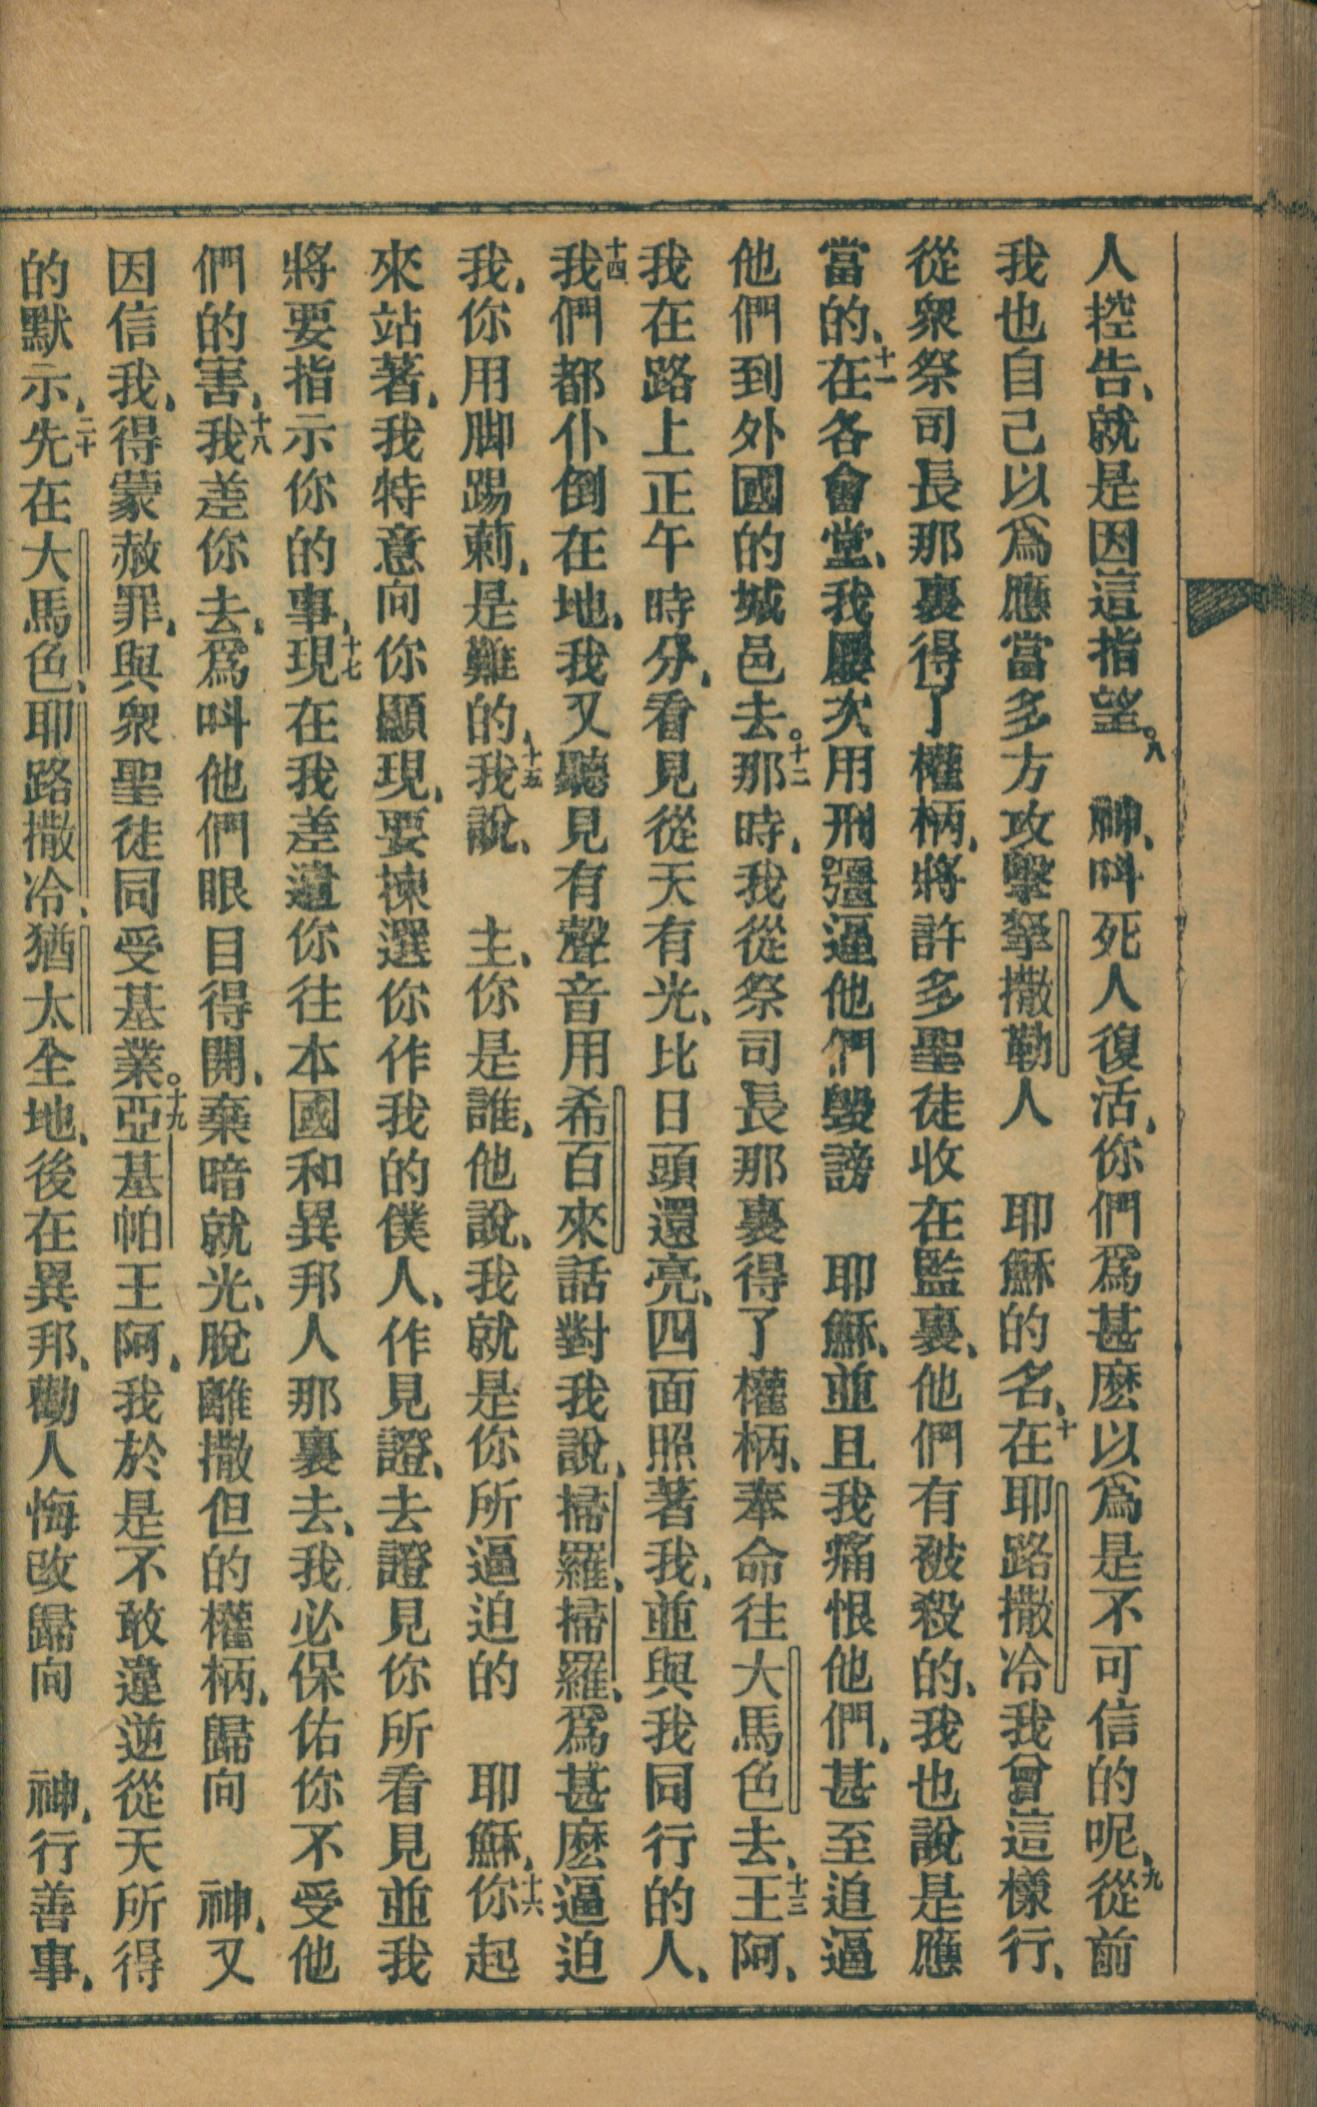 人控告、就是因這指望。八　神、叫死人復活、你們爲甚麽以爲是不可信的呢、九從前
我也自己以爲應當多方攻擊拏撒勒人　耶穌的名、十在耶路撒冷我曾這樣行、
從衆祭司長那裏得了權柄、將許多聖徒收在監裏、他們有被殺的、我也說是應
當的、十一在各會堂、我屢次用刑彊逼他們毀謗　耶穌、並且我痛恨他們、甚至追逼
他們到外國的城邑去。十二那時、我從祭司長那裏得了權柄、奉命往大馬色去、十三王阿、
我在路上正午時分、看見從天有光、比日頭還亮、四面照著我、並與我同行的人、
十四我們都仆倒在地、我又聽見有聲音用希百來話對我說、掃羅、掃羅、爲甚麽逼迫
我、你用脚踢莿、是難的、十五我說、　主、你是誰、他說、我就是你所逼迫的　耶穌、十六你起
來站著、我特意向你顯現、要揀選你作我的僕人、作見證、去證見你所看見並我
將要指示你的事、十七現在我差遣你往本國和異邦人那裏去、我必保佑你不受他
們的害、十八我差你去、爲叫他們眼目得開、棄暗就光、脫離撒但的權柄、歸向　神、又
因信我、得蒙赦罪、與衆聖徒同受基業。十九亞基帕王阿、我於是不敢違逆從天所得
的默示、二十先在大馬色、耶路撒冷、猶太全地、後在異邦、勸人悔改歸向　神、行善事、